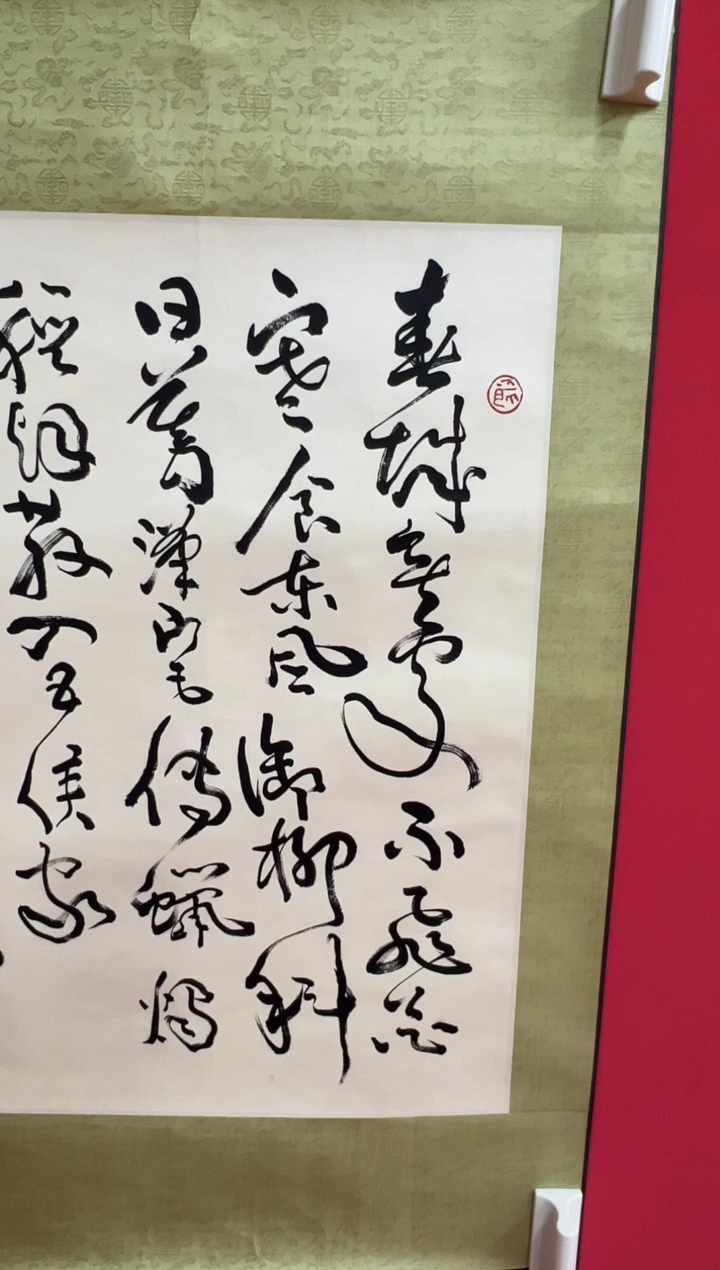 春城無處不飛花
寒食东風御柳斜
日暮漢宮傳蠟燭
輕烟散入五侯家